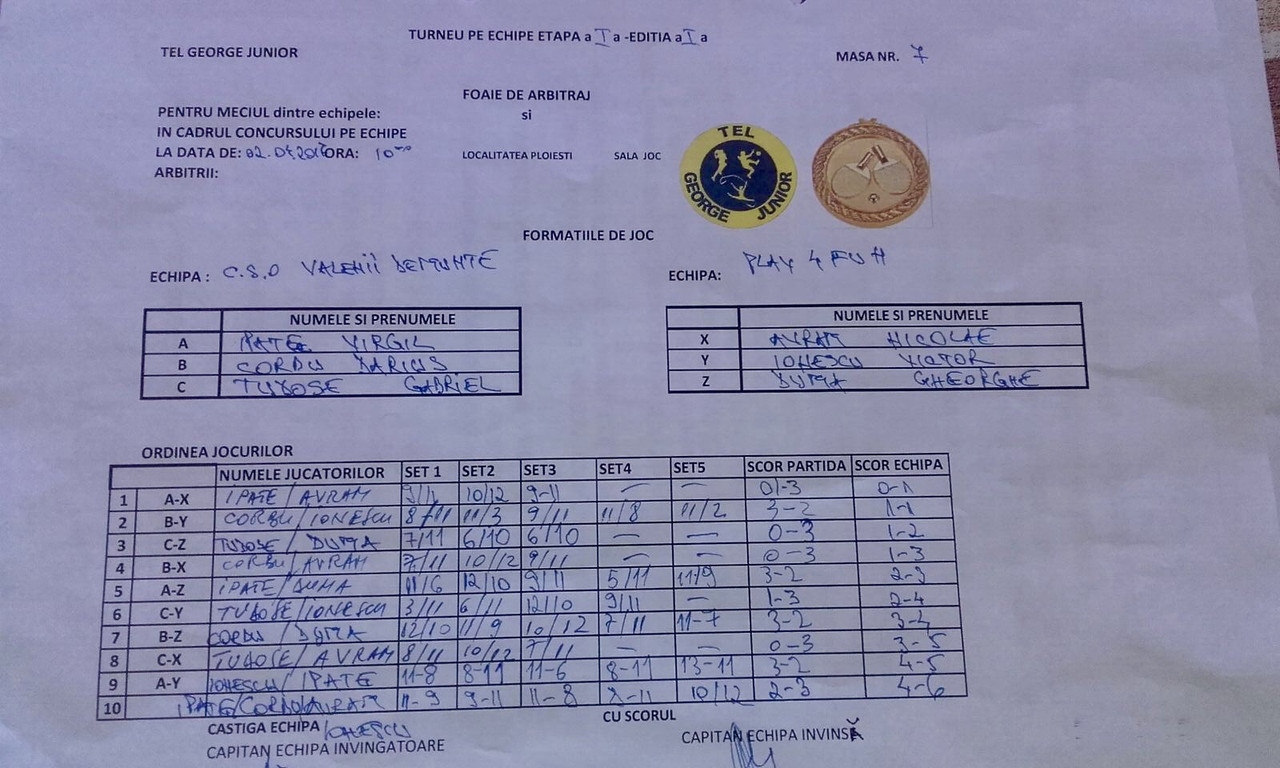 TURNEU PE ECHIPE ETAPA a I a -EDITIA a I a
TEL GEORGE JUNIOR
MASA NR. 7
FOAIE DE ARBITRAJ
PENTRU MECIUL dintre echipele: si
IN CADRUL CONCURSULUI PE ECHIPE
LA DATA DE: ORA: 10 LOCALITATEA PLOIESTI SALA JOC
ARBITRII:
TEL GEORGE JUNIOR
FORMATIILE DE JOC
ECHIPA : C.S.O VALENII DEMUNTE
ECHIPA: PLAY 4 FUN
NUMELE SI PRENUMELE
A IPATE VIRGIL
B CORBU DARIUS
C TUDOSE GABRIEL
NUMELE SI PRENUMELE
X AVRAM NICOLAE
Y IONESCU VICTOR
Z DUMA GHEORGHE
ORDINEA JOCURILOR
NUMELE JUCATORILOR SET 1 SET2 SET3 SET4 SET5 SCOR PARTIDA SCOR ECHIPA
1 A-X IPATE / AVRAM 9/11 10/12 9-11 — — 0-3 0-1
2 B-Y CORBU / IONESCU 8/11 11/3 9/11 11/8 11/2 3-2 1-1
3 C-Z TUDOSE / DUMA 7/11 6/10 6/10 — — 0-3 1-2
4 B-X CORBU / AVRAM 7/11 10/12 9/11 — — 0-3 1-3
5 A-Z IPATE / DUMA 11/6 12/10 9/11 5/11 11/9 3-2 2-3
6 C-Y TUDOSE / IONESCU 3/11 6/11 12/10 9/11 — 1-3 2-4
7 B-Z CORBU / DUMA 12/10 11/9 10/12 7/11 11-7 3-2 3-4
8 C-X TUDOSE / AVRAM 8/11 10/12 7/11 — — 0-3 3-5
9 A-Y IONESCU / IPATE 11-8 8-11 11-6 8-11 13-11 3-2 4-5
10 IPATE/CORBU/AVRAM 11-9 9-11 11-8 10/12 2-3 4-6
CASTIGA ECHIPA IONESCU CU SCORUL
CAPITAN ECHIPA INVINGATOARE CAPITAN ECHIPA INVINSĂ